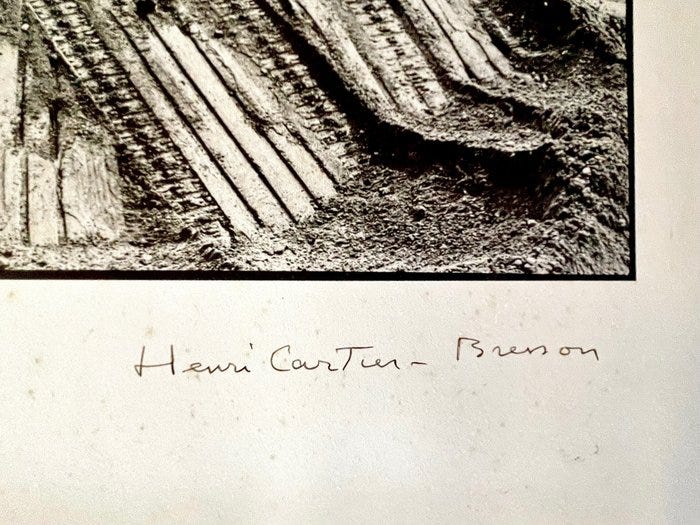 Henri Cartier-Bresson